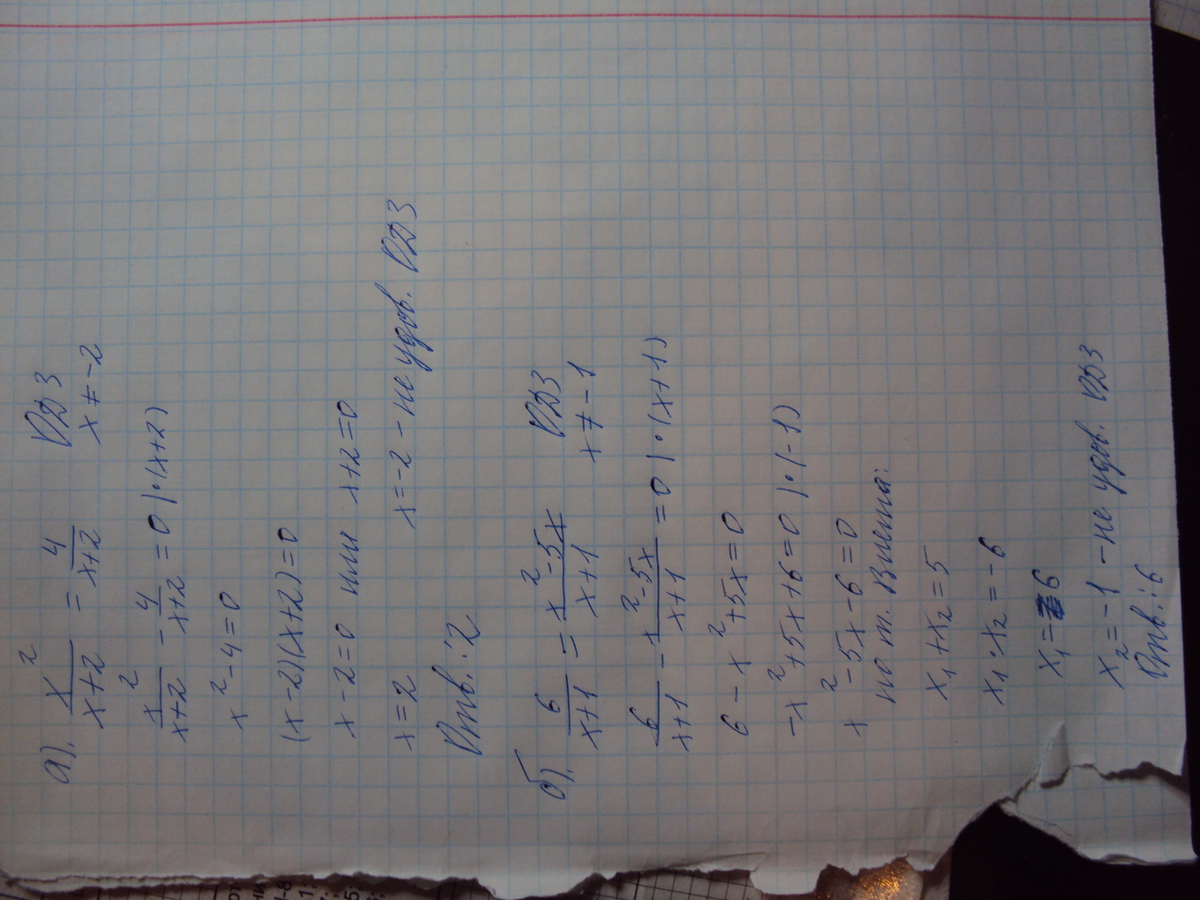 а). x²/(x+2) = 4/(x+2) ОДЗ
x ≠ -2
x²/(x+2) - 4/(x+2) = 0 |·(x+2)
x² - 4 = 0
(x-2)(x+2) = 0
x - 2 = 0 или x+2 = 0
x = 2 x = -2 - не удов. ОДЗ
Отв.: 2
б). 6/(x+1) = (x² - 5x)/(x+1) ОДЗ
x ≠ -1
6/(x+1) - (x² - 5x)/(x+1) = 0 |·(x+1)
6 - x² + 5x = 0
-x² + 5x + 6 = 0 |·(-1)
x² - 5x - 6 = 0
по т. Виета:
x₁ + x₂ = 5
x₁ · x₂ = -6
x₁ = 6
x₂ = -1 - не удов. ОДЗ
Отв.: 6